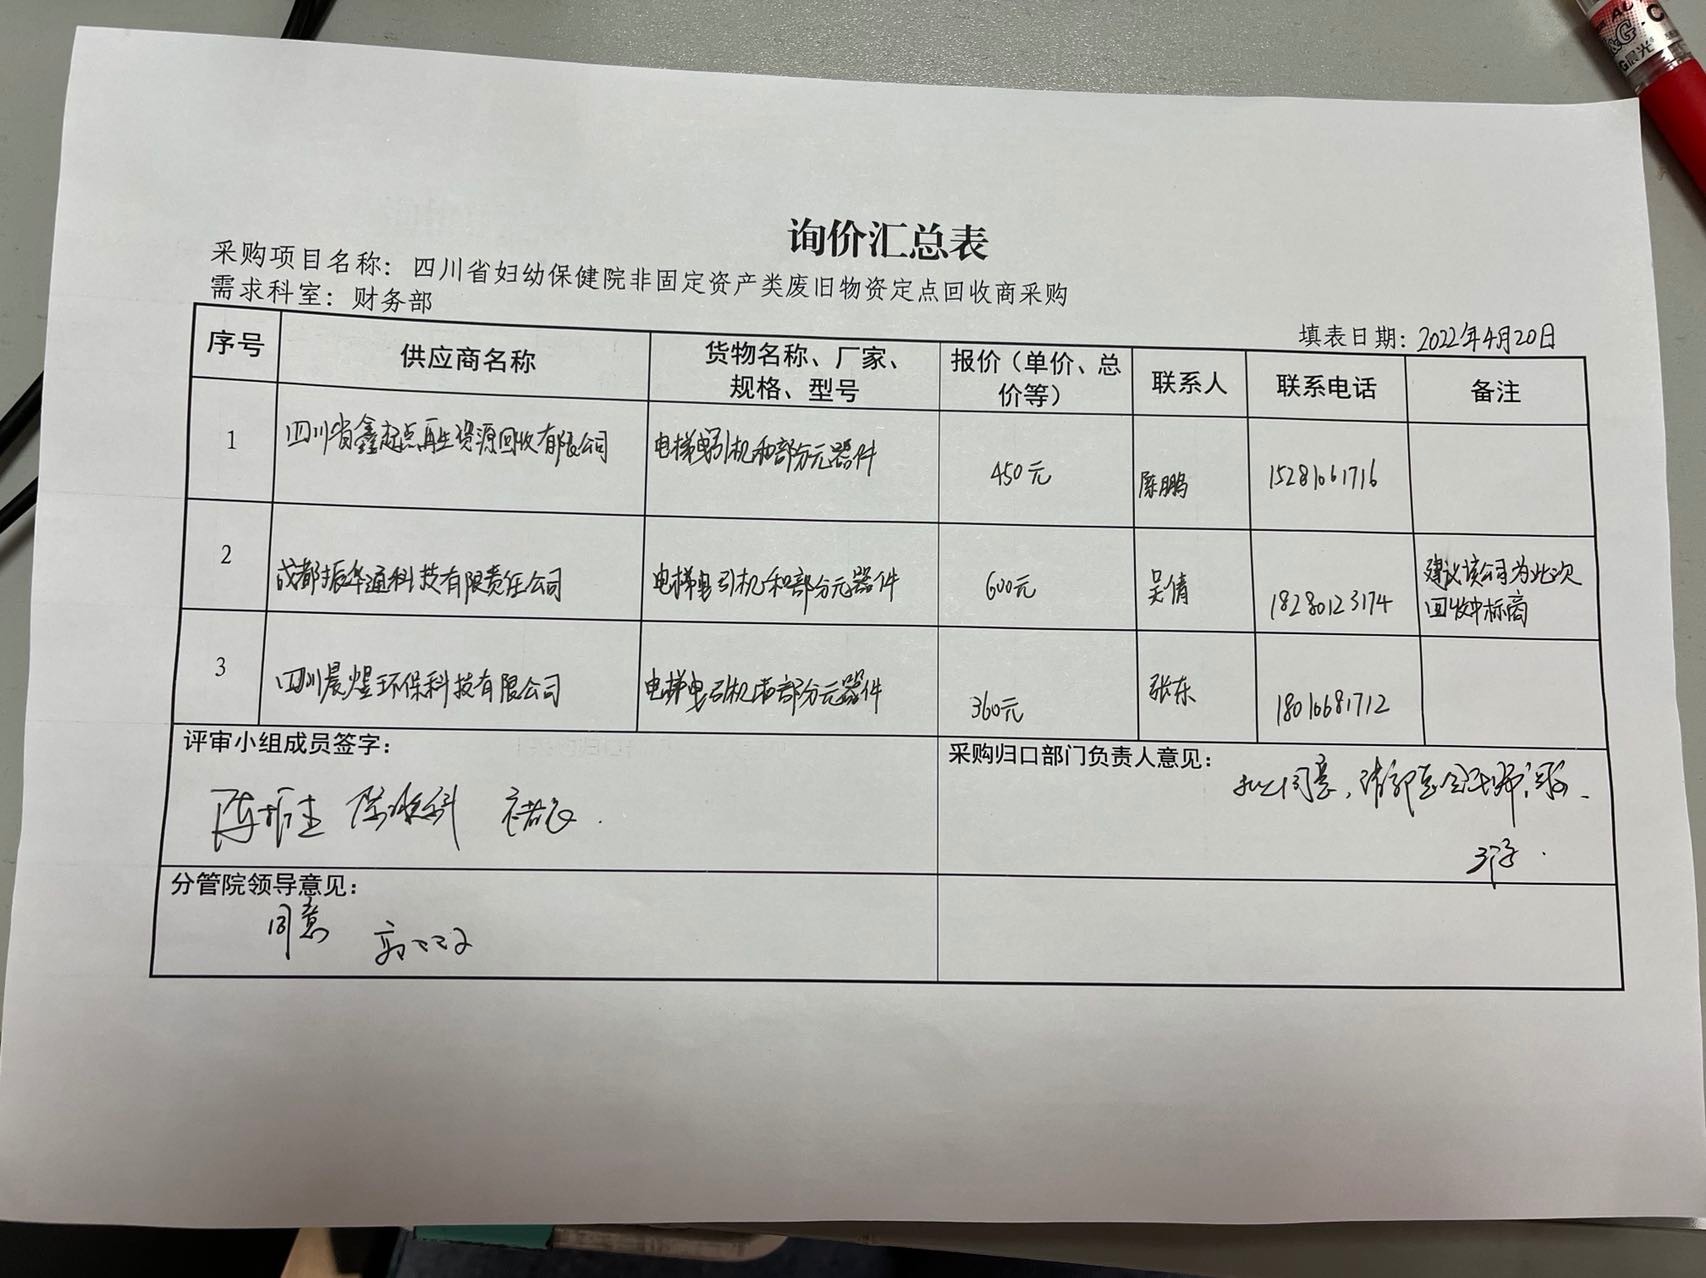 询价汇总表
采购项目名称：四川省妇幼保健院非固定资产类废旧物资定点回收商采购
需求科室：财务部
填表日期：2022年4月20日
序号 供应商名称 货物名称、厂家、规格、型号 报价（单价、总价等） 联系人 联系电话 备注
1 四川省鑫起点再生资源回收有限公司 电梯曳引机和部分元器件 450元 陈鹏 15281061716
2 成都振华通科技有限责任公司 电梯曳引机和部分元器件 600元 吴倩 18280123174 建议该公司为此次回收中标商
3 四川晨煜环保科技有限公司 电梯曳引机和部分元器件 360元 张东 18010681712
评审小组成员签字：
采购归口部门负责人意见：
拟同意，请郭总会计师
分管院领导意见：
同意
晨光